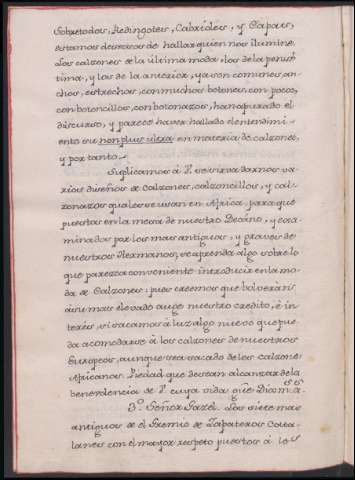 Sobretodos, Redingotes, Cabriolés, y Capas,
estamos deseosos de hallar quien nos ilumine.
Los calzones de la última moda, los de la penúl
tima, y los de la anterior, ya son comunes, an-
chos, estrechos, con muchos botones, con pocos,
con botoncillos, con botonazos, han apurado el
discurso, y parece haver hallado el entendimi-
ento su non plus ultra en materia de calzones,
y por tanto.
Suplicamos à V. se sirva darnos va-
rios diseños de Calzones, calzoncillos, y cal-
zonazos quales se usan en Africa, para que
puestos en la mesa de nuestro Decano, y exa-
minados por los mas antiguos, y graves de
nuestros Hermanos, se aprenda algo sobre lo
que parezca conveniente introducir en la mo-
da de Calzones; pues creemos que bolverán
á su mas elevado auge nuestro credito, è in-
terés si sacamos à luz algo nuevo que pue-
da acomodarse à los calzones de nuestros
Europeos, aunque sea sacado de los calzones
Africanos. Piedad que desean alcanzar de la
benevolencia de V. cuya vida gue. Dios m.s a.s
3.º Señor Gazel. Los siete mas
antiguos de el Gremio de Zapateros Cata-
lanes con el mayor respeto puestos à los